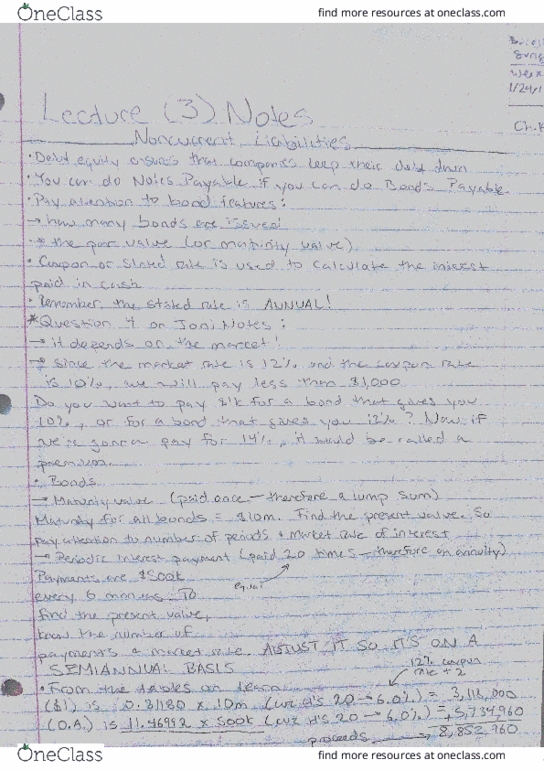 OneClass
find more resources at oneclass.com
1/24/1
Ch.
Lecture (3) Notes
Noncurrent Liabilities
• Debt equity ensures that companies keep their debt down
• You can do Notes Payable if you can do Bonds Payable
• Pay attention to bond features:
→ how many bonds are issued
→ the par value (or maturity value)
• Coupon or stated rate is used to calculate the interest
paid in cash
• Remember, the stated rate is ANNUAL!
*Question 4 on Joni Notes:
→ it depends on the market!
→ Since the market rate is 12% and the coupon rate
is 10%, we will pay less than $1,000
Do you want to pay $1k for a bond that gives you
10%, or for a bond that gives you 12%? Now, if
we're gonna pay for 14%, it would be called a
premium.
• Bonds
→ Maturity value (paid once - therefore a lump sum)
Maturity for all bonds = $10m. Find the present value. So
pay attention to number of periods + market rate of interest
→ Periodic interest payment (paid 20 times - therefore an annuity)
Payments are $500k
equal
every 6 months. To
find the present value,
know the number of
payments + market rate. ADJUST IT SO IT'S ON A
SEMIANNUAL BASIS
12% coupon
rate ÷ 2
• From the tables on learn
($1) is 0.31180 x 10m (cuz it's 20 → 6.0%) = 3,118,000
(O.A.) is 11.46992 x 500k (cuz it's 20 → 6.0%) = +5,734,960
proceeds → 8,852,960
OneClass
find more resources at oneclass.com